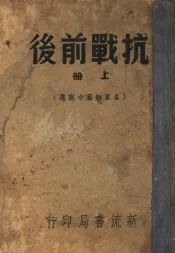 抗戰前後
上册
(名家短篇小說選)
新流書局印行